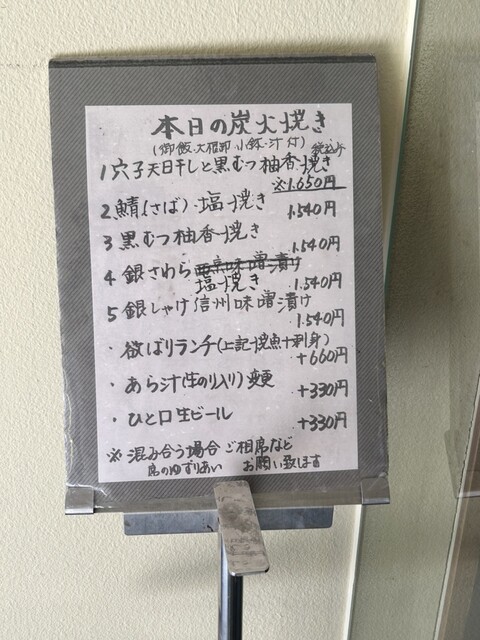 本日の炭火焼き
(御飯・大根卸・小鉢・汁付) 税込み
1 穴子天日干しと黒むつ柚香焼き
※1.650円
2 鯖(さば)塩焼き 1.540円
3 黒むつ柚香焼き
1.540円
4 銀さわら西京味噌漬け
塩焼き 1.540円
5 銀しゃけ信州味噌漬け
1.540円
・欲ばりランチ(上記焼魚+刺身)
+660円
・あら汁(生のり入り)変更
+330円
・ひと口生ビール
+330円
※混み合う場合ご相席など
席のゆずりあい お願い致します